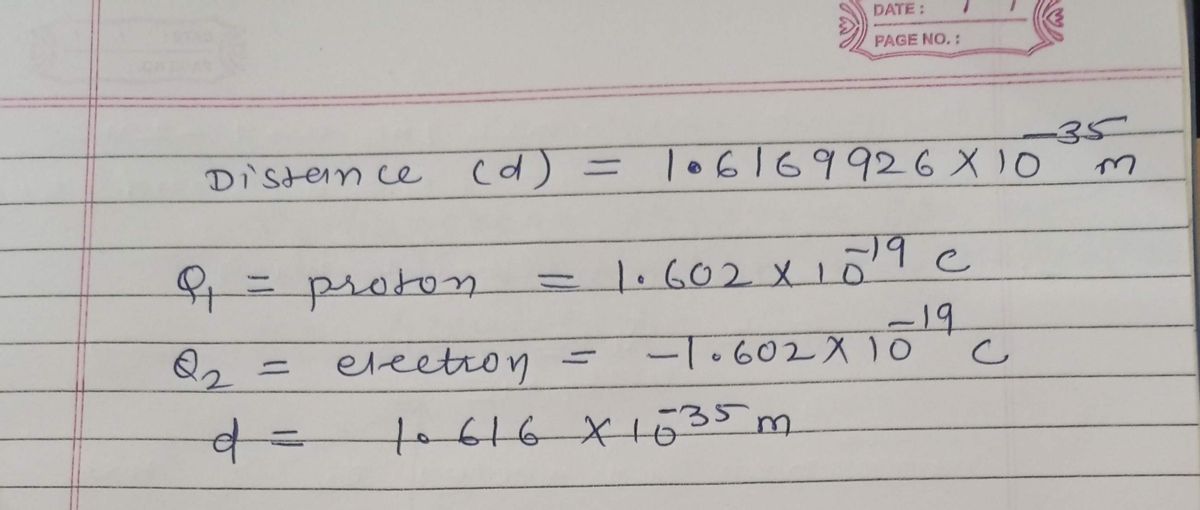 DATE: / /
PAGE NO.:
Distance (d) = 1.6169926 × 10⁻³⁵ m
Q₁ = proton = 1.602 × 10⁻¹⁹ C
Q₂ = electron = -1.602 × 10⁻¹⁹ C
d = 1.616 × 10⁻³⁵ m